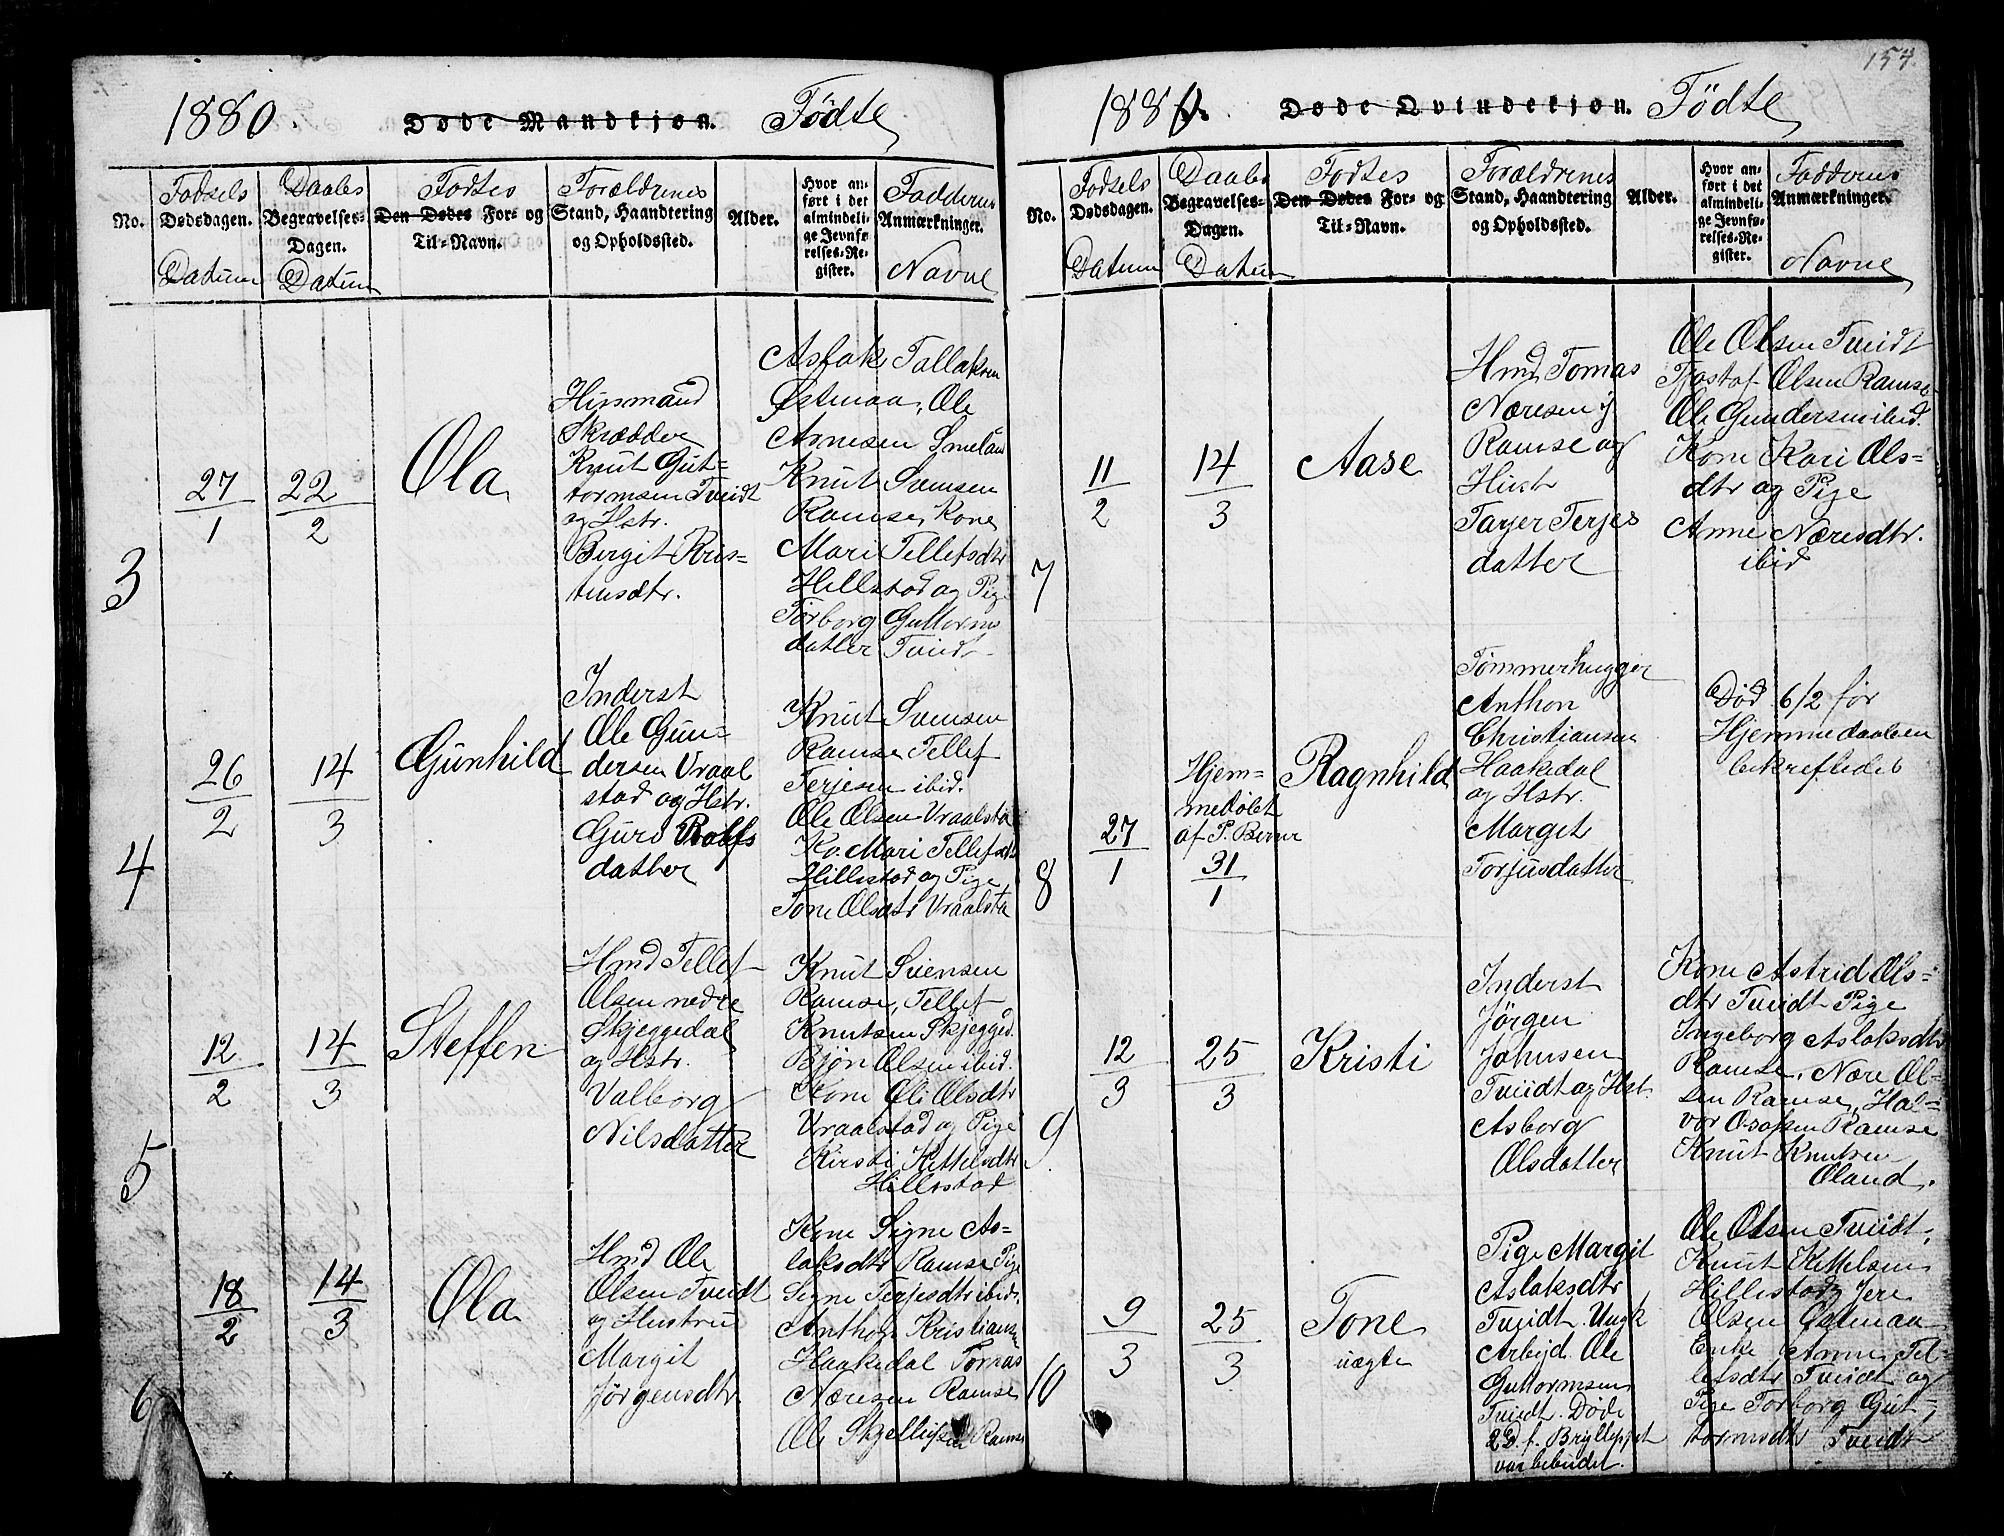 154.
1880. Døde Mandkjøn. Fødte
No.
Fødsels
Dødsdagen.
Datum
Daabs
Begravelses-
Dagen.
Datum
Fødtes
Den Dødes For- og
Til-Navn.
Forældrenes
Stand, Haandtering
og Opholdssted.
Alder.
Hvor an-
ført i det
almindeli-
ge Jevnfø-
relses-Re-
gister.
Faddernes
Anmærkninger.
Navne
3
27/1
22/2
Ola
Husmand
Skrædder
Knut Gut-
tormsen Tveidt
og Hstr.
Birgit Kris-
tensdtr.
Aslak Tallaksen
Østmaa, Ole
Arnesen Smeland
Knut Svensen
Ramse, Kone
Mari Tellefsdtr
Hillestad og Pige
Torborg Guttorms
datter Tveidt
4
26/2
14/3
Gunhild
Inderst
Ole Gun-
dersen Vraal
stad og Hstr.
Guro Rolfs
datter
Knut Svensen
Ramse Tellef
Terjesen ibid.
Ole Olsen Vraalsta
Ko. Mari Tellefsdtr
Hillestad og Pige
Tone Olsdtr Vraalsta
5
12/2
14/3
Steffen
Hmd Tellef
Olsen nedre
Skjeggedal
og Hstr.
Valborg
Nilsdatter
Knut Svensen
Ramse, Tellef
Knutsen Skjegged.
Bjøn Olsen ibid.
Kone Oli Olsdtr
Vraalstad og Pige
Kirsti Kittelsdtr
Hillestad
6
18/2
14/3
Ola
Hmd Ole
Olsen Tveidt
og Hustru
Margit
Jørgensdtr
Kone Signe As-
laksdtr Ramse Pige
Signe Terjesdtr ibid.
Anthon Kristianse
Haakedal Tomas
Næresen Ramse
Ole Ramse
1880. Døde Qvindekjøn. Fødte
No.
Fødsels
Dødsdagen.
Datum
Daabs
Begravelses-
Dagen.
Datum
Fødtes
Den Dødes For- og
Til-Navn.
Forældrenes
Stand, Haandtering
og Opholdssted.
Alder.
Hvor an-
ført i det
almindeli-
ge Jevnfø-
relses-Re-
gister.
Faddernes
Anmærkninger.
Navne
7
11/2
14/3
Aase
Hmd Tomas
Næresen
Ramse og
Hust
Tarjer Terjes
datter
Ole Olsen Tveidt
Tjøstaf Olsen Ramse
Ole Gundersen ibid.
Kone Kari Ols-
dtr og Pige
Anne Næresdtr.
ibid
8
27/1
Hjem-
medøbt
af P. Berner
31/1
Ragnhild
Tømmerhugger
Anthon
Christiansen
Haakedal
og Hstr.
Margit
Torjusdatter
Død 6/2 før
Hjemmedaaben
bekræftedes
9
12/3
25/3
Kristi
Inderst
Jørgen
Johnsen
Tveidt og Hst.
Asborg
Olsdatter
Kone Astrid Ols-
dtr Tveidt Pige
Ingeborg Aslaksdtr
Ramse, Nære Ol-
sen Ramse, Hal-
vor Osofsen Ramse
Knut Knutsen
Øland.
10
9/3
25/3
Tone
uægte
Pige Margit
Aslaksdtr
Tveidt. Ungk
Arbejd. Ole
Guttormsen
Tveidt. Døde
2D f. Brylluppet
var bebudet.
Ole Olsen Tveidt,
Knut Kittelsen
Hillestad, Jere
Olsen Østmaa
Enke Anne Tel-
lefsdtr Tveidt og
Pige Torborg Gut-
tormsdtr Tveidt